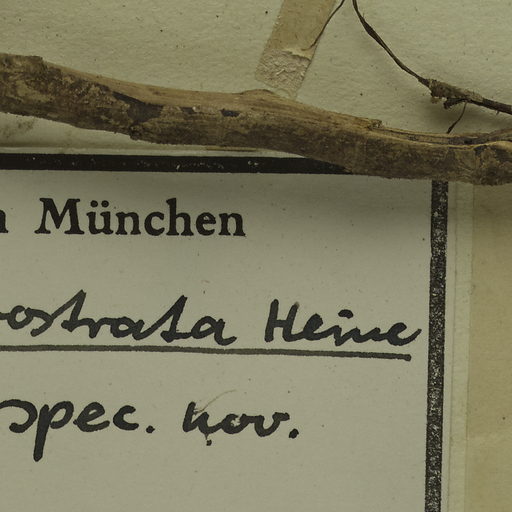 n München
ostrata Heine
spec. nov.